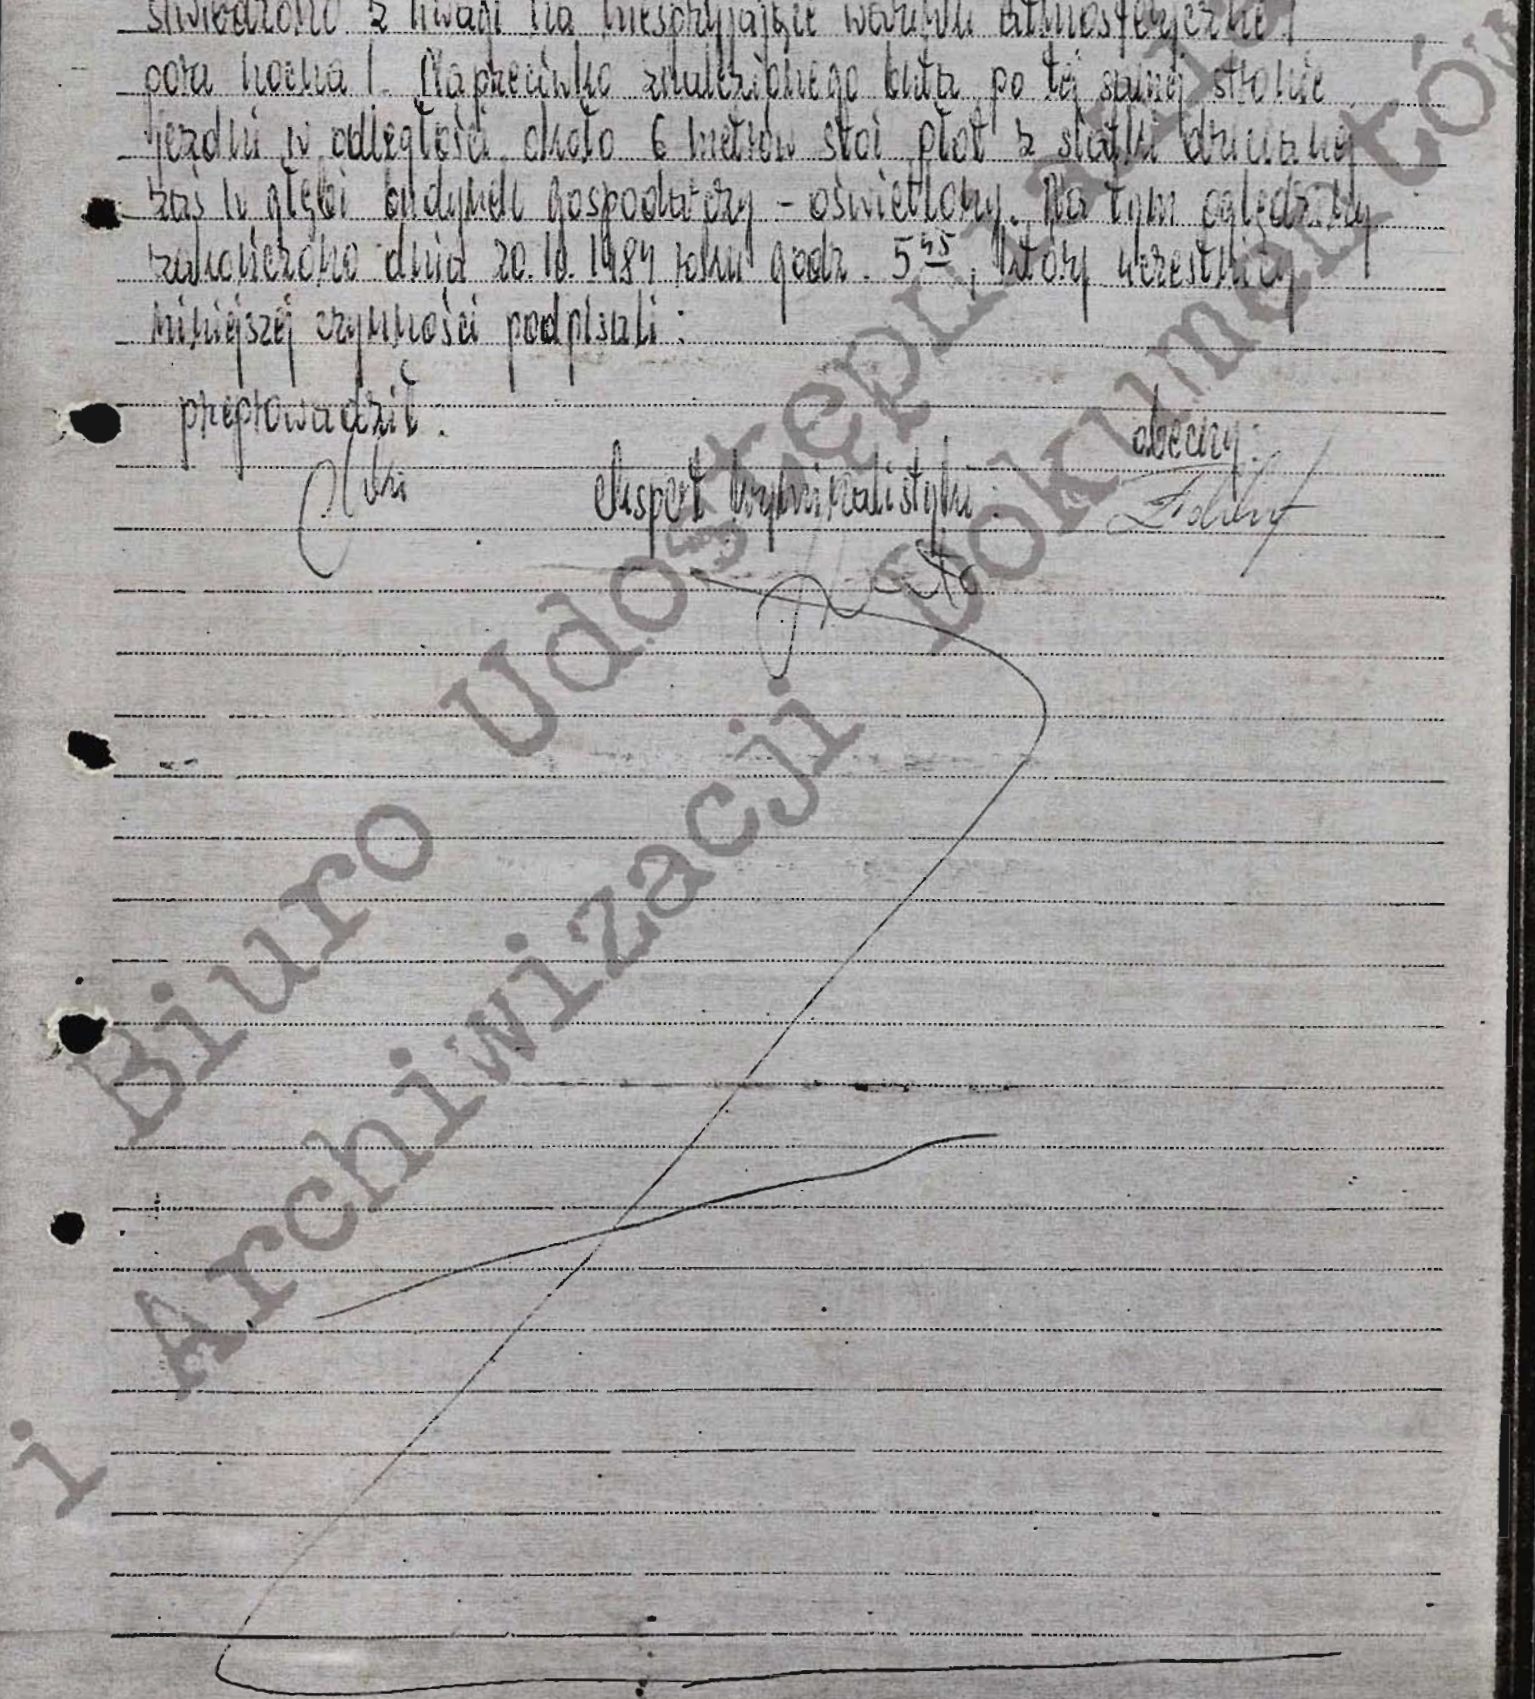 stwierdzono z uwagi na niesprzyjające warunki atmosferyczne /
pora nocna /. Naprzeciwko znalezionego buta, po tej samej stronie
jezdni w odległości około 6 metrów stoi płot z siatki drucianej
zaś w głębi budynek gospodarczy - oświetlony. Na tym oględziny
zakończono dnia 20.10.1984 roku godz. 5 45, który uczestnicy
niniejszej czynności podpisali :
przeprowadził :
obecny :
ekspert kryminalistyki :
Biuro Udostępniania
i Archiwizacji Dokumentów